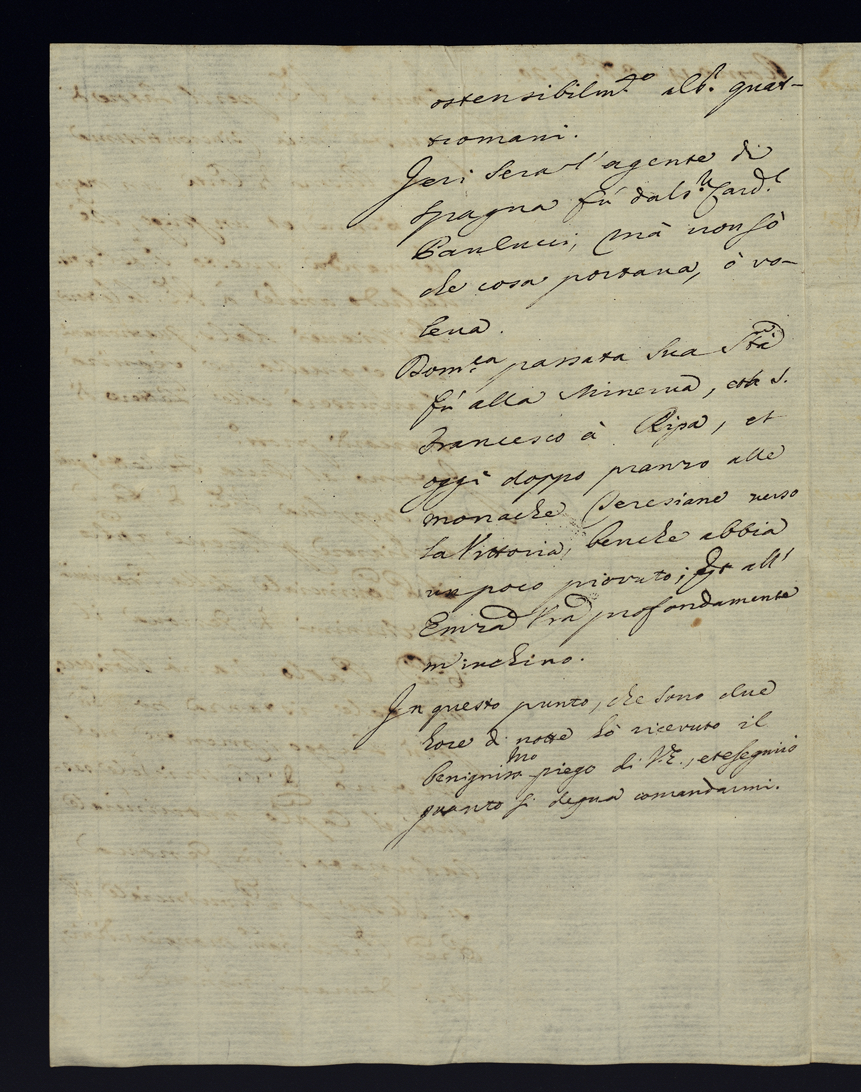 ostensibilm.te alb.e quat-
tromani.
Jeri sera l'agente di
Spagna fù dal S.r Card.l
Paulucci, mà non sò
che cosa portaua, ò vo-
leua.
Dom.ca passata Sua S.tà
fù alla Minerua, et à S.
Francesco à Ripa, et
oggi doppo pranzo alle
monache Teresiane verso
la Vittoria, benche abbia
un poco piovuto; Et all'
Emza Vra profondamente
m'inchino.
In questo punto, che sono due
hore di notte hò riceuuto il
benignissmo piego di V.E., et eseguirò
quanto si degna comandarmi.